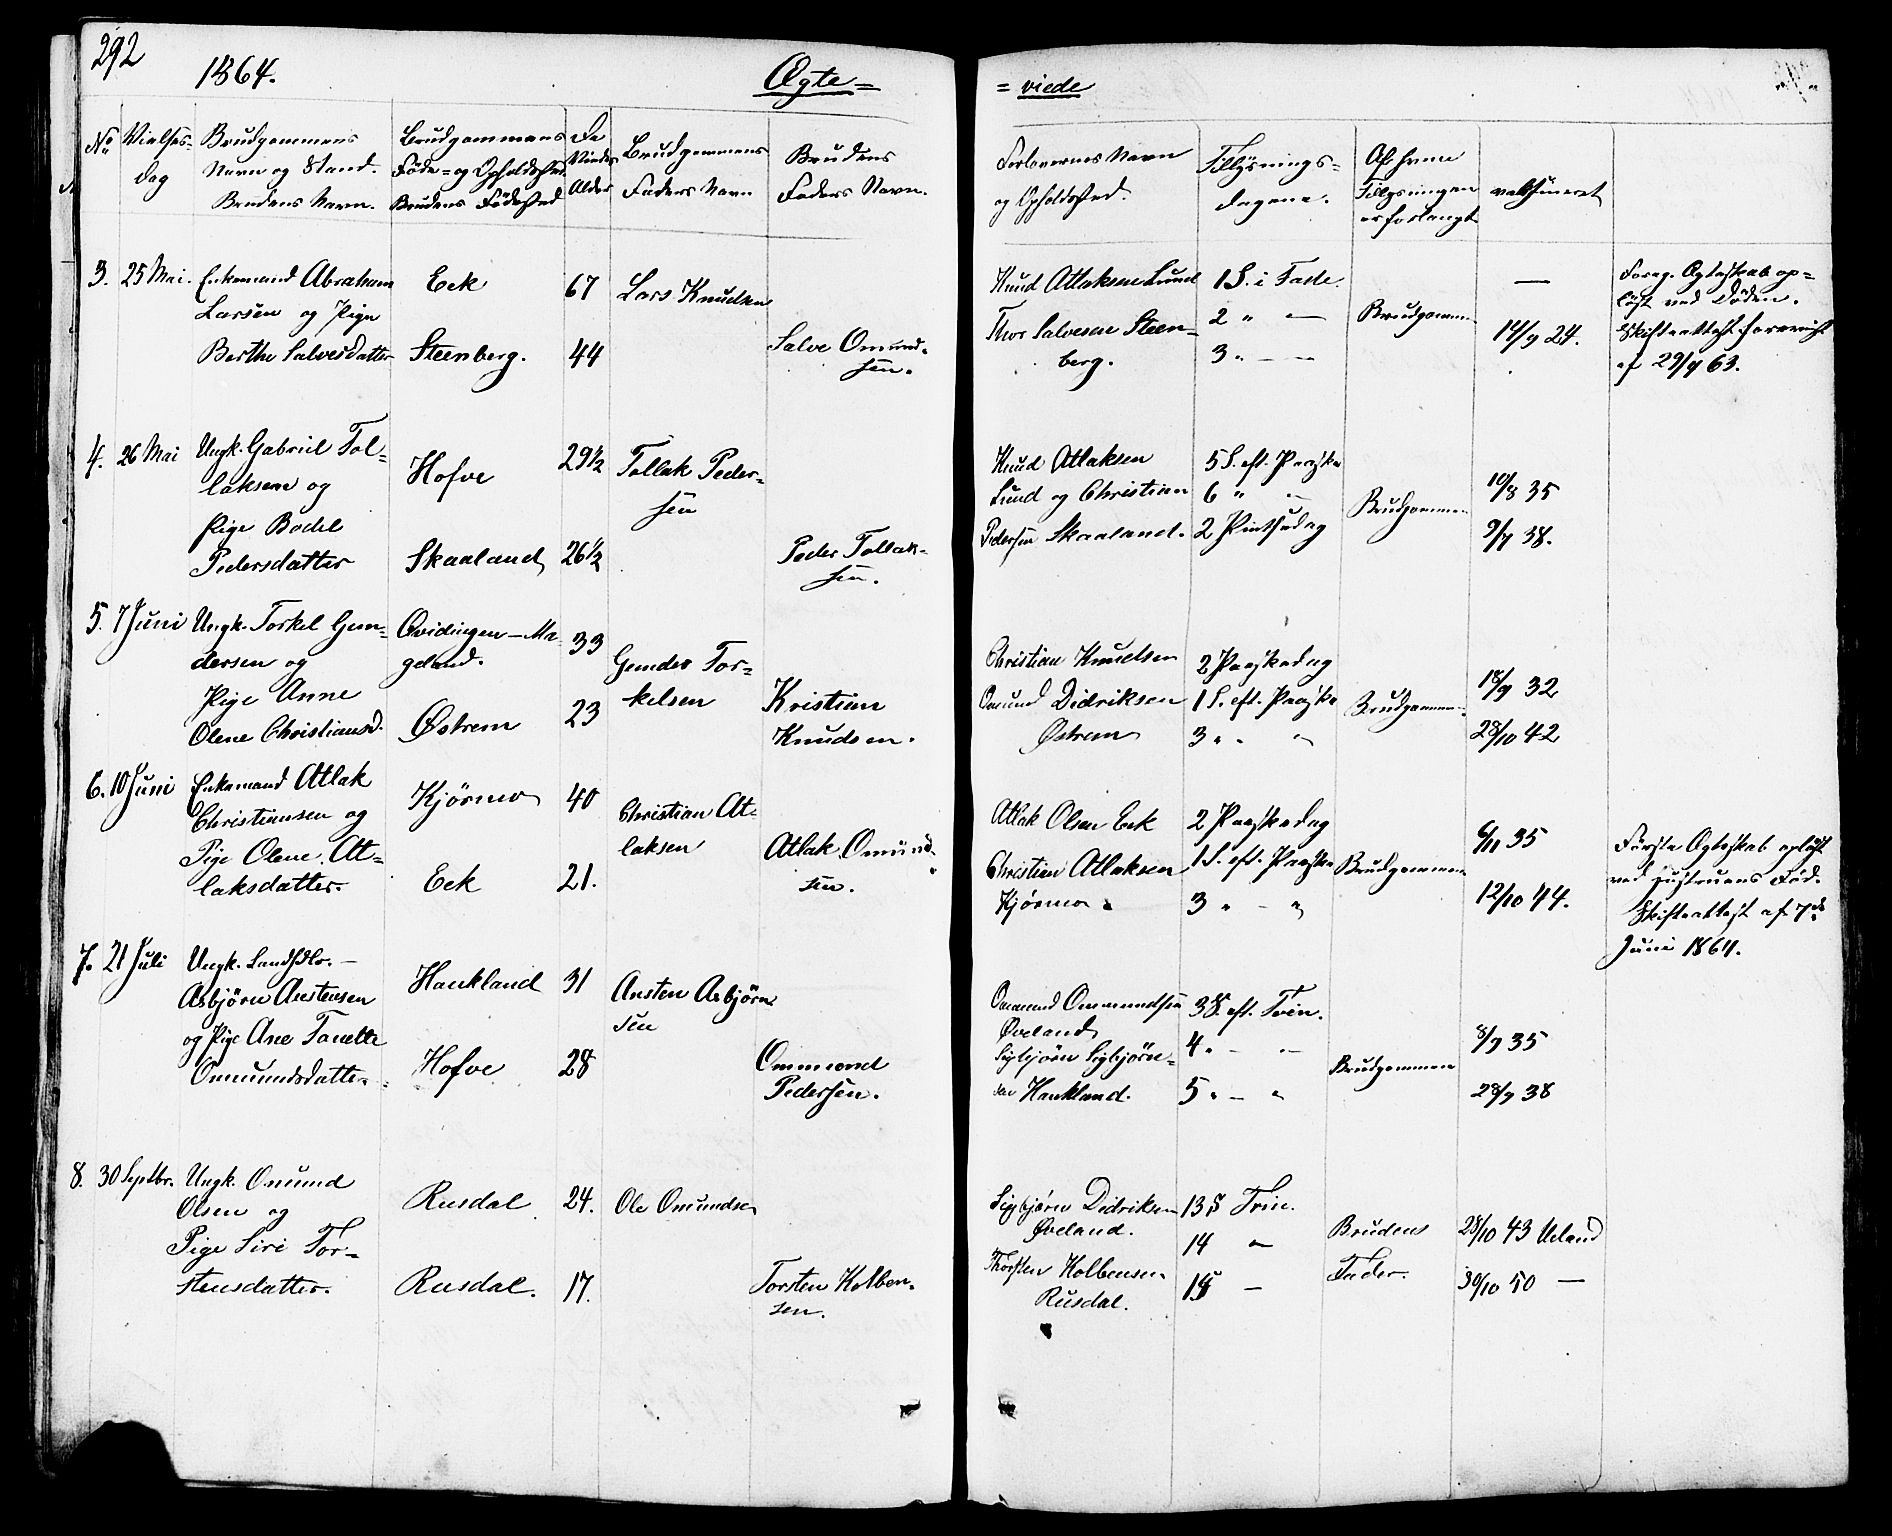 292
1864.
Ægte=
= viede
No
Vielses-
dag
Brudgommens
Navn og Stand.
Brudens Navn.
Brudgommens
Føde= og Opholdssted
Brudens Fødested
De
Viedes
Alder
Brudgommens
Faders Navn
Brudens
Faders Navn.
Forlovernes Navn
og Opholdssted.
Tillysnings=
dagene.
Af hvem
Tillysningen
er forlangt
vaksineret
3. 25 Mai.
Enkemand Abraham
Larsen og Pige
Berthe Salvesdatter
Eek
Steenberg.
67
44
Lars Knudsen
Salve Omund-
sen.
Knud Atlaksen Lund
Thor Salvesen Steen-
berg.
1 S. i Faste.
2 " —
3 " — —
Brudgommen
—
14/9 24.
Foreg. Ægteskab op=
løst ved Døden.
Skifteattest
af 29/9 63.
4. 26 Mai
Ungk. Gabriel Tol=
laksen og
Pige Bodel
Pedersdatter
Hofve
Skaaland
29½
26½
Tollak Peder-
sen
Peder Tollak-
sen.
Knud Atlaksen
Lund og Christian
Pedersen Skaaland.
5 S. eft. Paaske
6 " —
2 Pintsedag
Brudgommen
10/8 35
9/7 38.
5. 7 Juni
Ungk. Torkel Gun-
dersen og
Pige Anne
Olene Christiansd.
Qvidingen — Ma-
geland.
Østrem
33
23
Gunder Tor-
kelsen
Kristian
Knudsen.
Christian Knudsen
Omund Didriksen
Østrem
2 Paaskedag
1 S. eft. Paaske
3 " "
Brudgommen.
18/9 32
28/10 42
6. 10 Juni
Enkemand Atlak
Christiansen og
Pige Olene At=
laksdatter.
Kjørmo
Eek
40
21.
Christian At-
laksen
Atlak Omund-
sen.
Atlak Olsen Eek
Christian Atlaksen
Kjørmo
2 Paaskedag
1 S. eft. Paaske
3 " - "
Brudgommen
6/11 35
12/10 44.
Første Ægteskab opløst
ved Hustruens Død.
Skifteattest af 7de
Juni 1864.
7. 21 Juli
Ungk. Landhdlr. —
Asbjørn Austensen
og Pige Ane Tonette
Omundsdatter.
Haukland
Hofve
31
28
Austen Asbjørn
sen
Ommond
Pedersen.
Ommund Ommundsen
Øveland
Sigbjørn Sigbjørn-
sen Haukland.
3 S. eft. Trin.
4 " — —
5 " — "
Brudgommen
8/9 35
28/9 38
8. 30 Septbr.
Ungk. Omund
Olsen og
Pige Siri Tor-
stensdatter.
Rusdal
Rusdal.
24.
17.
Ole Omundsen
Torsten Kolben-
sen.
Sigbjørn Didriksen
Øveland.
Thorsten Kolbensen
Rusdal.
13 S Trin.
14 —
15 —
Brudens
Fader.
28/10 43 Ueland
30/10 50 —